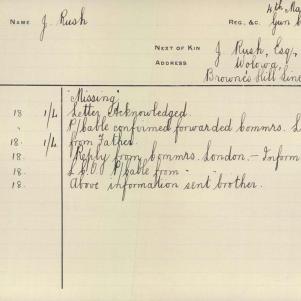 4th Ma
NAME J. Rush REG. &C. Gun
NEXT OF KIN J Rush, Esq,
ADDRESS Wolowa,
Browne's Hill Line
"Missing"
18 1/4 Letter Acknowledged.
" P/bable confirmed forwarded bommrs. L
18. 1/4 from Father.
18. Reply from bommrs. London. - Inform
18. P/bable from "
18. Above information sent brother.